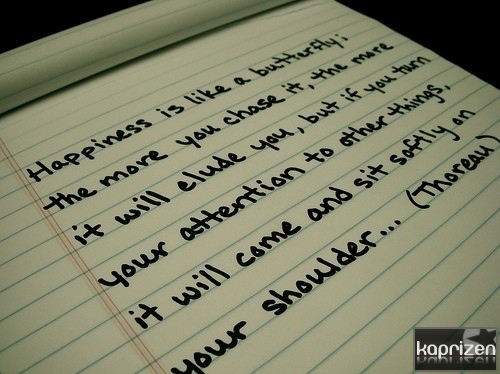 Happiness is like a butterfly;
the more you chase it, the more
it will elude you, but if you turn
your attention to other things,
it will come and sit softly on
your shoulder... (Thoreau)
kaprizen